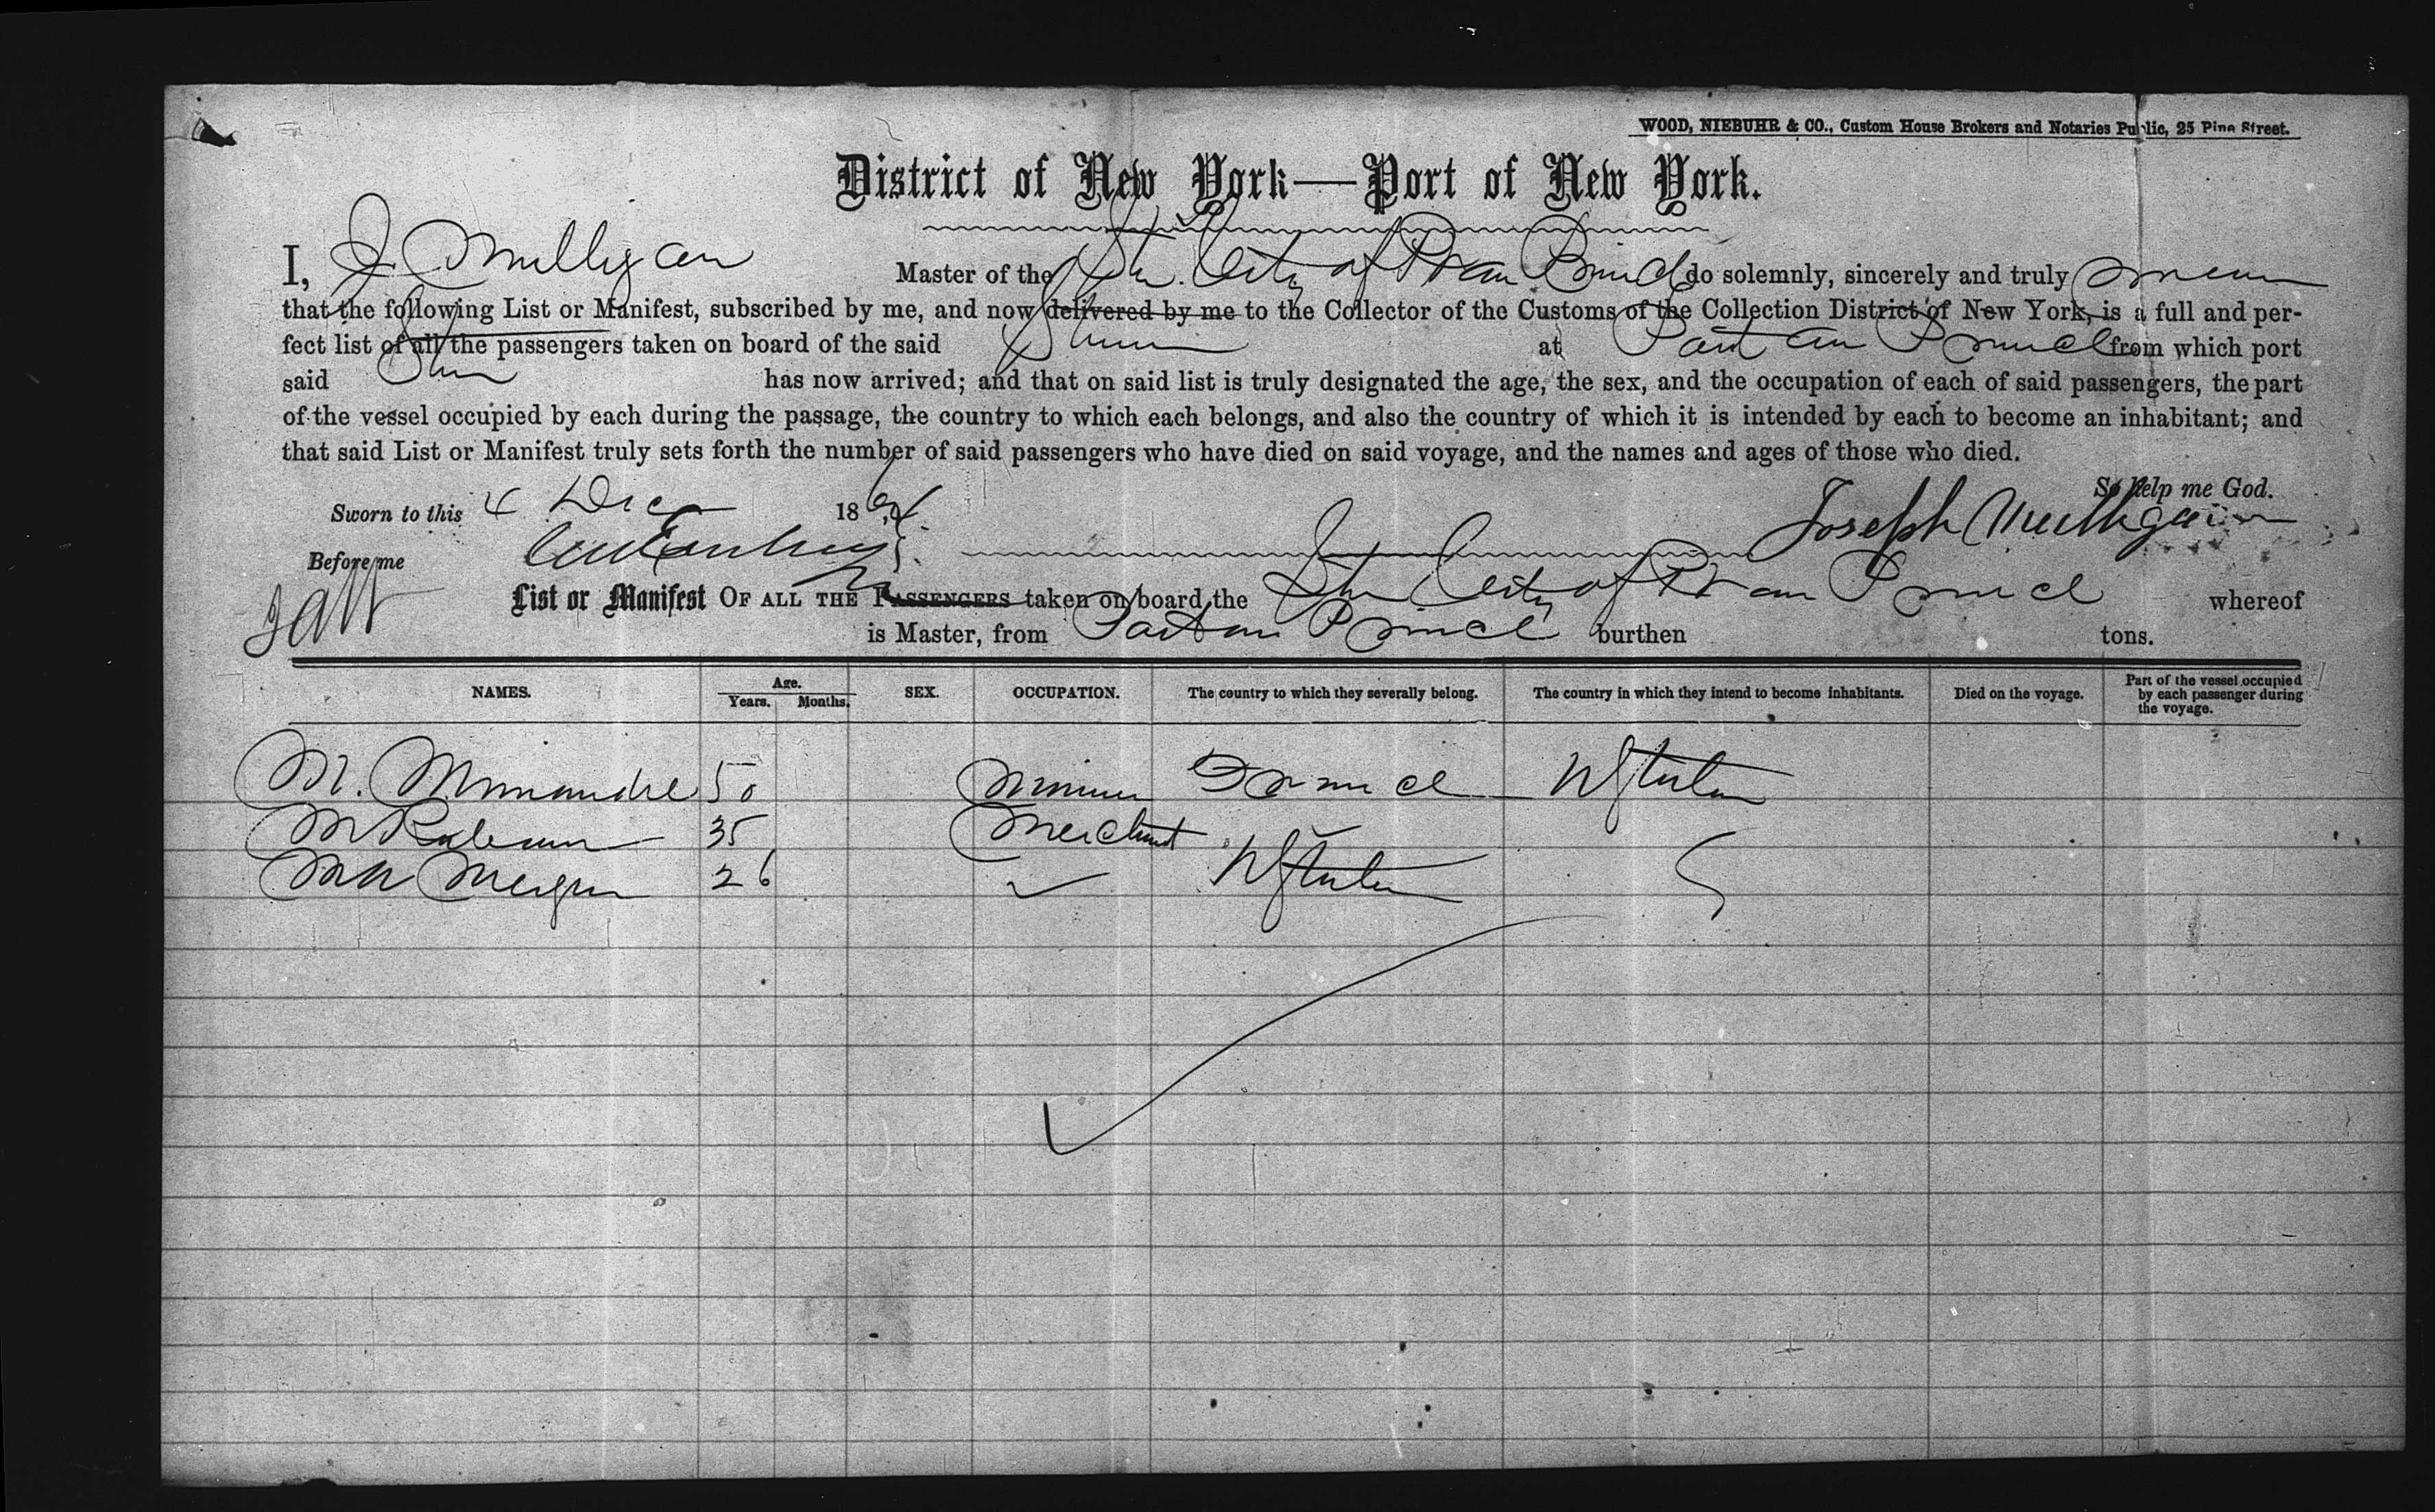 WOOD, NIEBUHR & CO., Custom House Brokers and Notaries Public, 25 Pine Street.
District of New York—Port of New York.
I, J Mulligan Master of the Str. City of Port au Prince do solemnly, sincerely and truly swear
that the following List or Manifest, subscribed by me, and now delivered by me to the Collector of the Customs of the Collection District of New York, is a full and per-
fect list of all the passengers taken on board of the said Str at Port au Prince from which port
said Str has now arrived; and that on said list is truly designated the age, the sex, and the occupation of each of said passengers, the part
of the vessel occupied by each during the passage, the country to which each belongs, and also the country of which it is intended by each to become an inhabitant; and
that said List or Manifest truly sets forth the number of said passengers who have died on said voyage, and the names and ages of those who died.
So help me God.
Sworn to this 4 Dec 186
Joseph Mulligan
Before me
List or Manifest OF ALL THE PASSENGERS taken on board the Str City of Port au Prince whereof
is Master, from Port au Prince burthen tons.
NAMES. Age. Years. Months. SEX. OCCUPATION. The country to which they severally belong. The country in which they intend to become inhabitants. Died on the voyage. Part of the vessel occupied by each passenger during the voyage.
M. 50 France U States
M 35 Merchant "
26 " U States